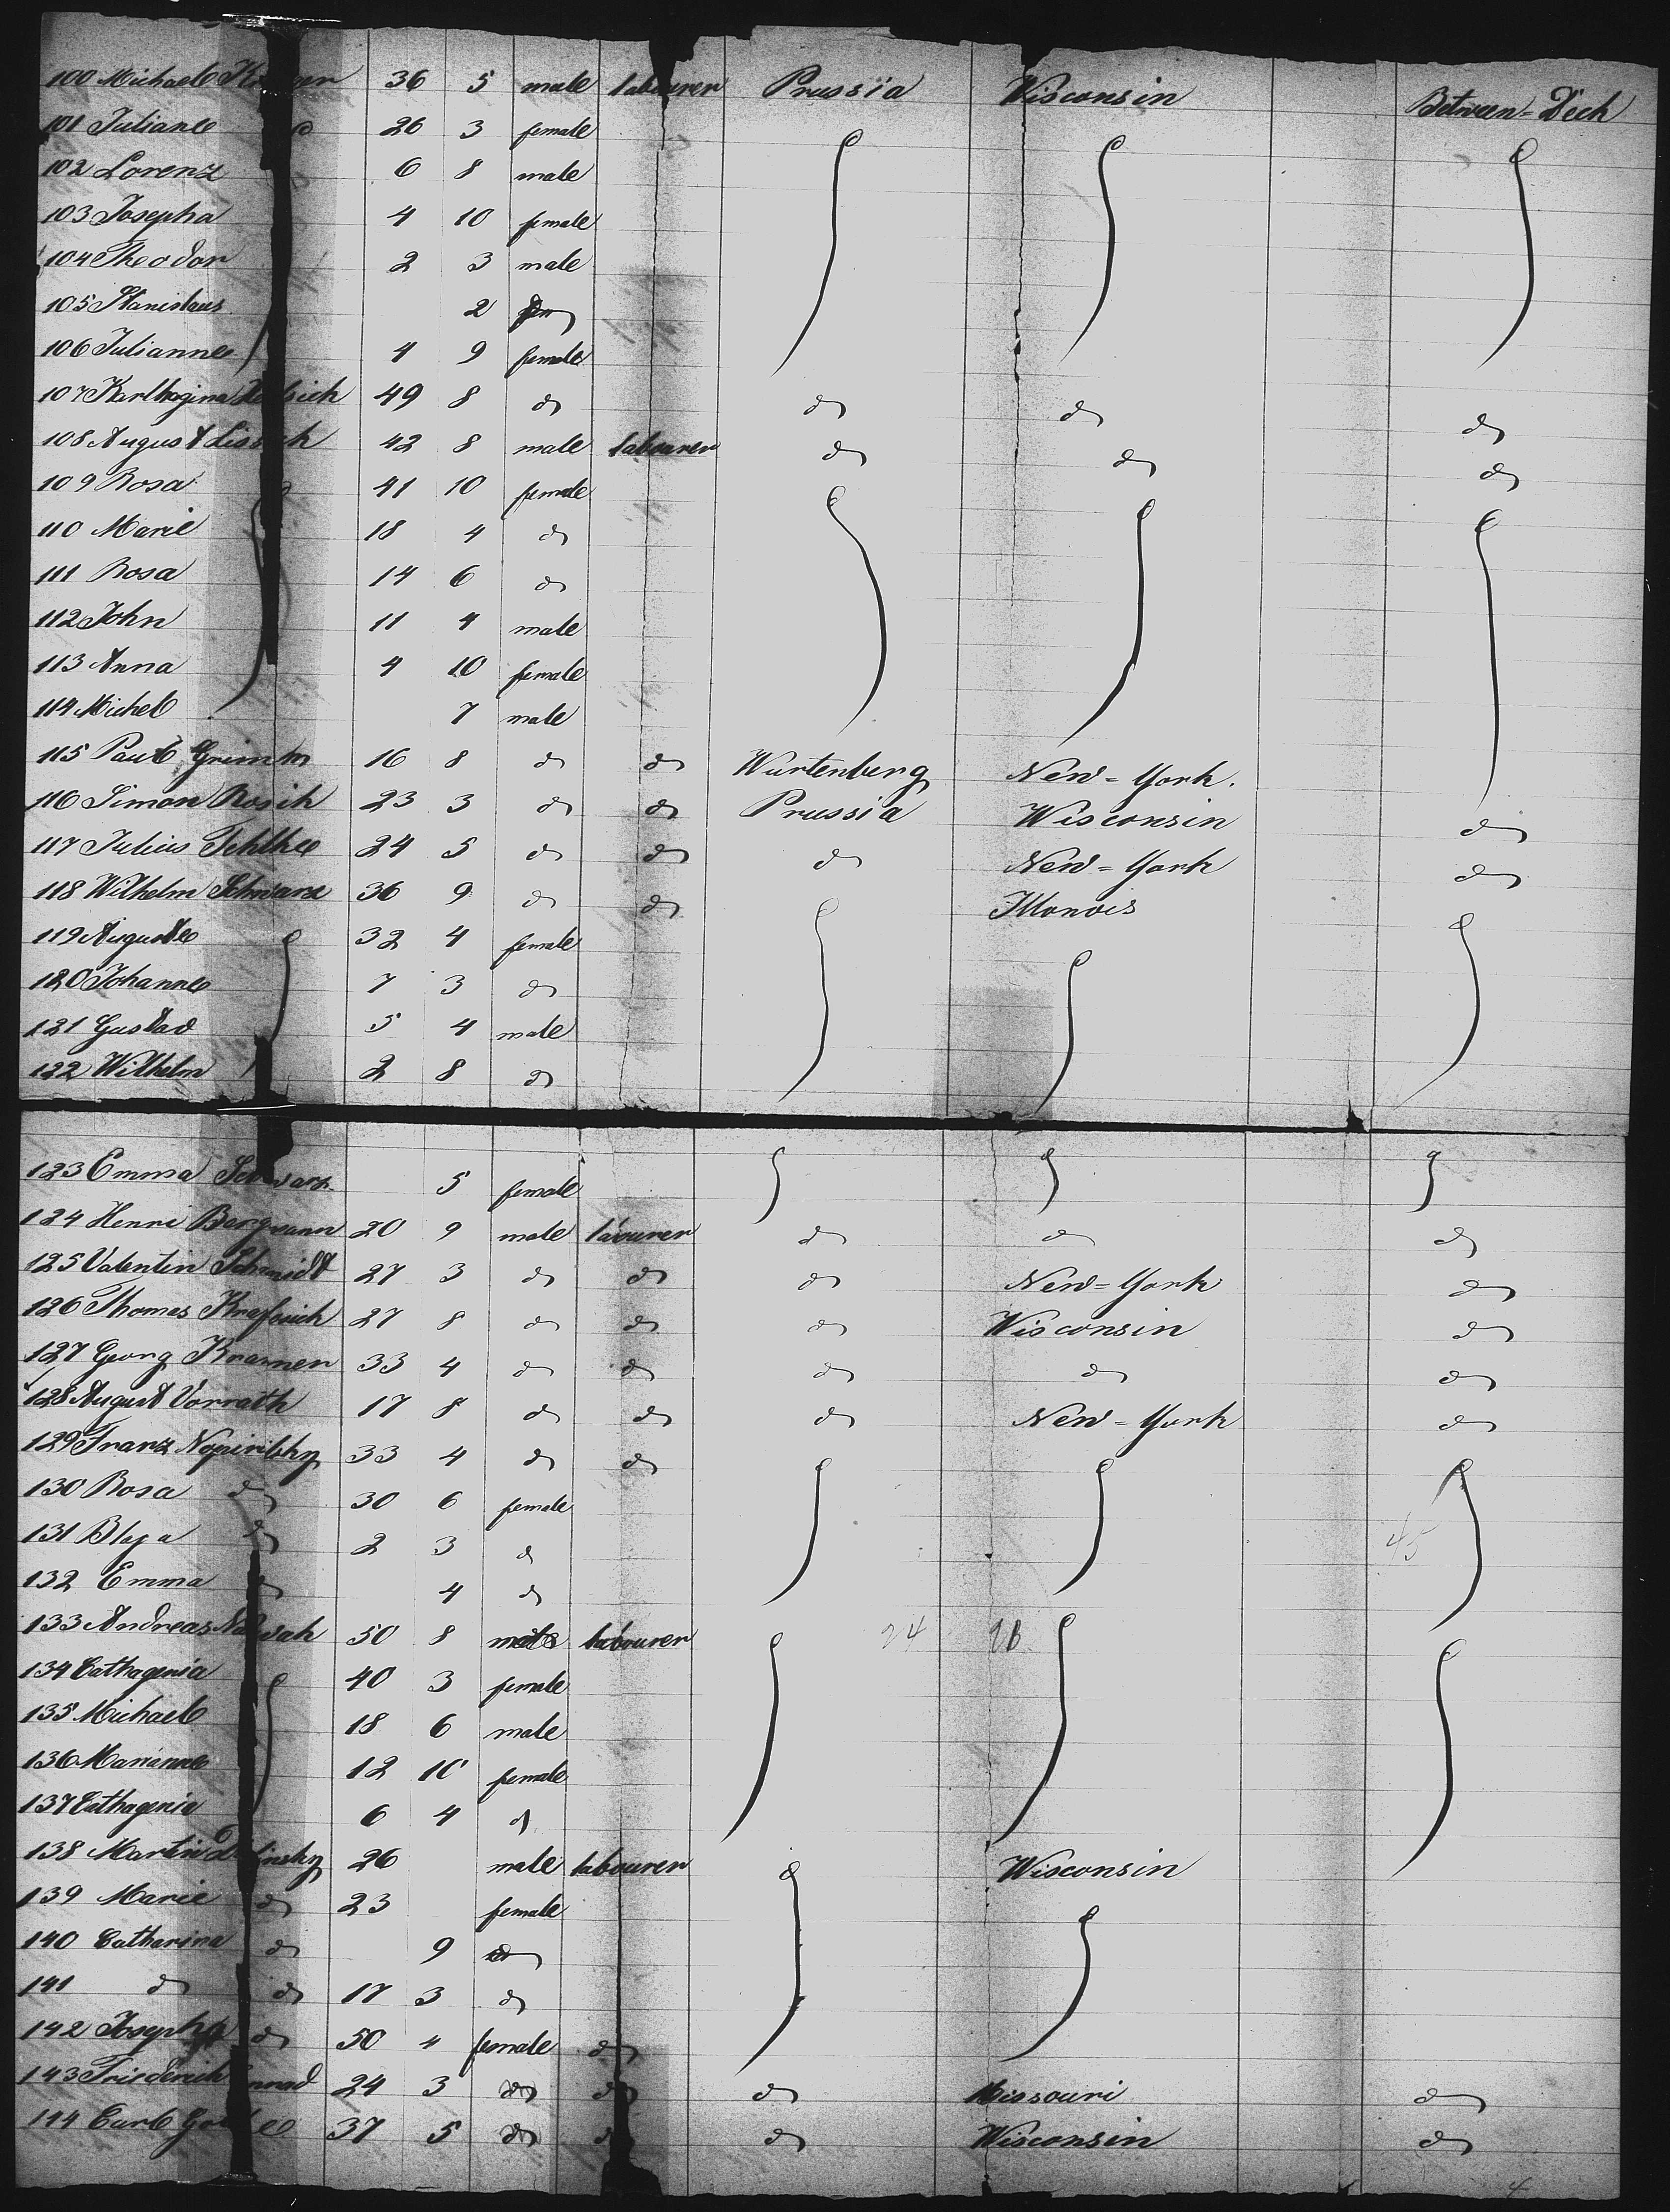 100 Michael 36 5 male labourer Prussia Wisconsin Between=Deck
101 Juliane 26 3 female
102 Lorenz 6 8 male
103 Josepha 4 10 female
104 Theodor 2 3 male
105 Stanislaus 2
106 Julianne 4 9 female
107 Karthagina 49 8 do do do do
108 August 42 8 male labourer do do do
109 Rosa 41 10 female
110 Marie 18 4 do
111 Rosa 14 6 do
112 John 11 4 male
113 Anna 4 10 female
114 Michel 7 male
115 Paul Grimm 16 8 do do Wurtenberg New=York.
116 Simon Rosik 23 3 do do Prussia Wisconsin do
117 Julius 24 5 do do do New=York do
118 Wilhelm Schwarz 36 9 do do Illonois
119 Auguste 32 4 female
120 Johanne 7 3 do
121 Gustav 5 4 male
122 Wilhelm 2 8 do
123 Emma Schwarz 5 female
124 Henri Bergmann 20 9 male labourer do do do
125 Valentin Schmidt 27 3 do do do New=York do
126 Thomas 27 8 do do do Wisconsin do
127 Georg Kramer 33 4 do do do do do
128 August Vorrath 17 8 do do do New=York do
129 Franz 33 4 do do
130 Rosa do 30 6 female
131 Blaja do 2 3 do
132 Emma do 4 do
133 Andreas 50 8 male labourer 24
134 Cathagenia 40 3 female
135 Michael 18 6 male
136 Marianne 12 10 female
137 Cathagenia 6 4 do
138 Martin 26 male labourer Wisconsin
139 Marie do 23 female
140 Catharina do 9 do
141 do do 17 3 do
142 Josepha do 50 4 female do
143 Friederich 24 3 do do do Missouri do
144 Carl 37 5 do do do Wisconsin do